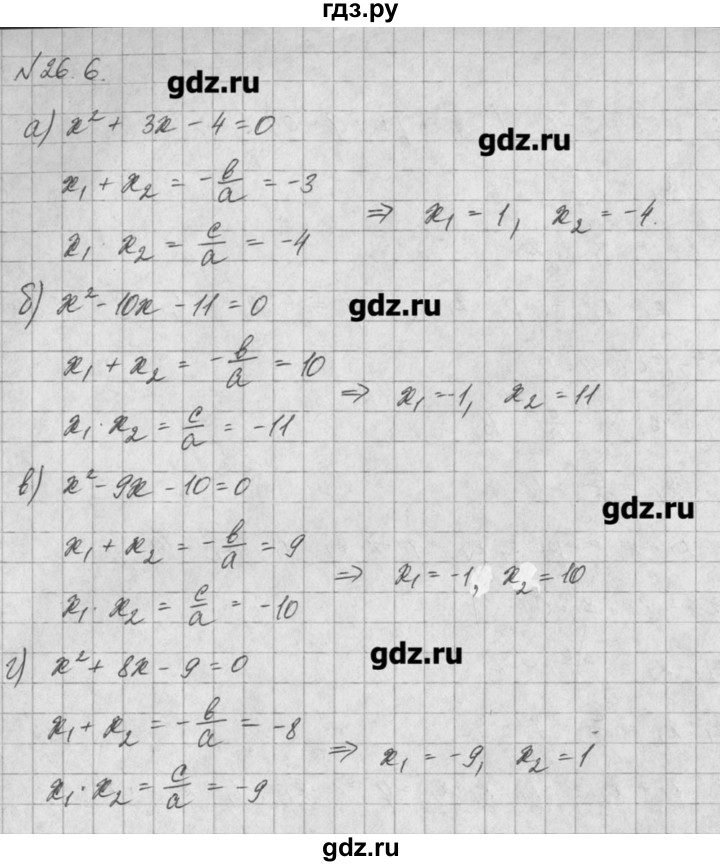 гдз.ру
№26.6.
gdz.ru
а) x² + 3x - 4 = 0
gdz.ru
x₁ + x₂ = -в/а = -3
⇒ x₁ = 1, x₂ = -4.
x₁ · x₂ = с/а = -4
б) x² - 10x - 11 = 0
gdz.ru
x₁ + x₂ = -в/а = 10
⇒ x₁ = -1, x₂ = 11
x₁ · x₂ = с/а = -11
в) x² - 9x - 10 = 0
gdz.ru
x₁ + x₂ = -в/а = 9
⇒ x₁ = -1, x₂ = 10
x₁ · x₂ = с/а = -10
г) x² + 8x - 9 = 0
gdz.ru
x₁ + x₂ = -в/а = -8
⇒ x₁ = -9, x₂ = 1
x₁ · x₂ = с/а = -9
gdz.ru